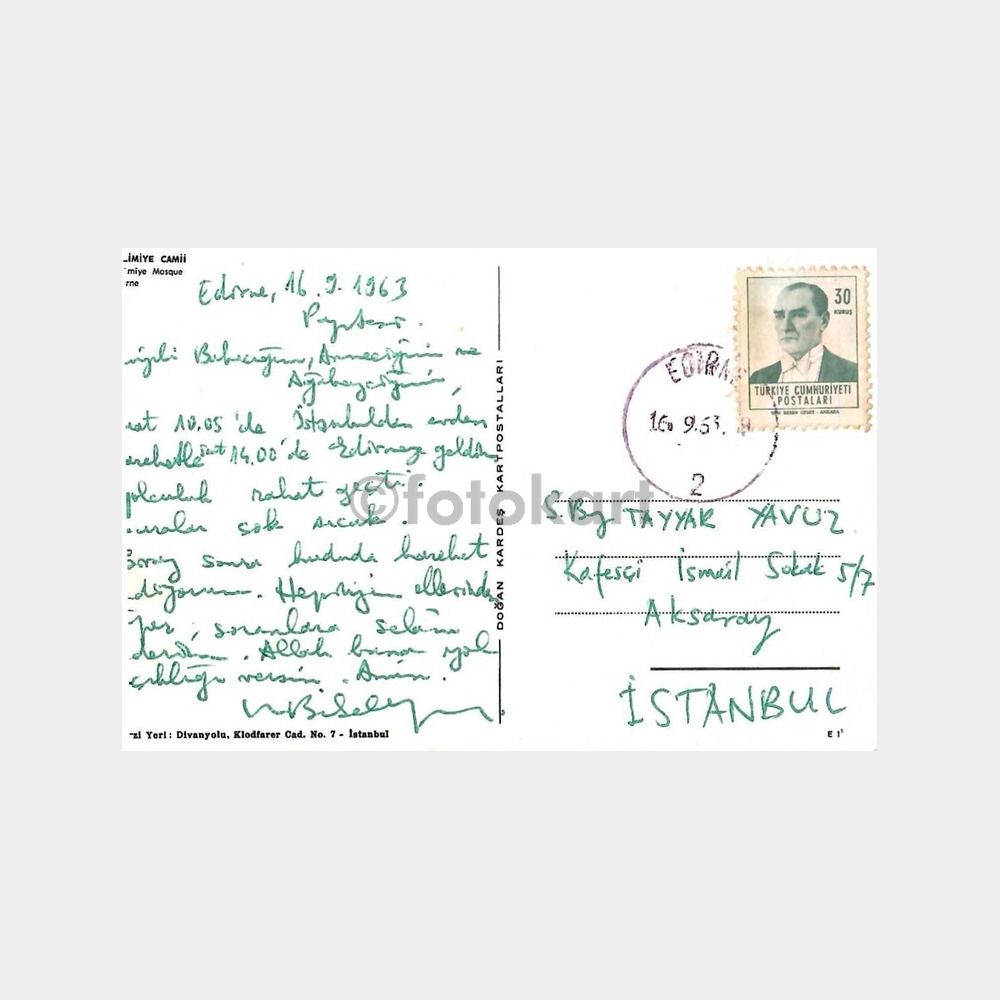 LİMİYE CAMİİ
miye Mosque
rne
Edirne, 16.9.1963
Pazartesi.
vgili Babacığım, Anneciğim ve
Ağabeyciğim,
aat 10.05'de İstanbuldan
arehetle saat 14.00'de Edirneye geldim
olculuk rahat geçti.
uralar çok sıcak.
Biraz sonra hududa hareket
diyorum. Hepinizin ellerinden
per, soranlara selâm
derim. Allah bana yol
çıklığı versin. Amin.
zi Yeri : Divanyolu, Klodfarer Cad. No. 7 - İstanbul
DOĞAN KARDEŞ KARTPOSTALLARI
30
KURUŞ
TÜRKİYE CUMHURİYETİ
POSTALARI
EDİRNE
16.9.63.
2
©fotokart
S. By TAYYAR YAVUZ
Kafesçi İsmail Sokak 5/7
Aksaray
İSTANBUL
E 1